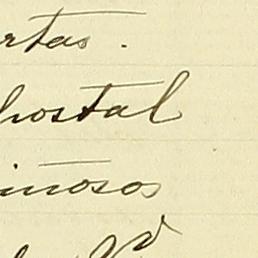 rtas.
hostal
inosos